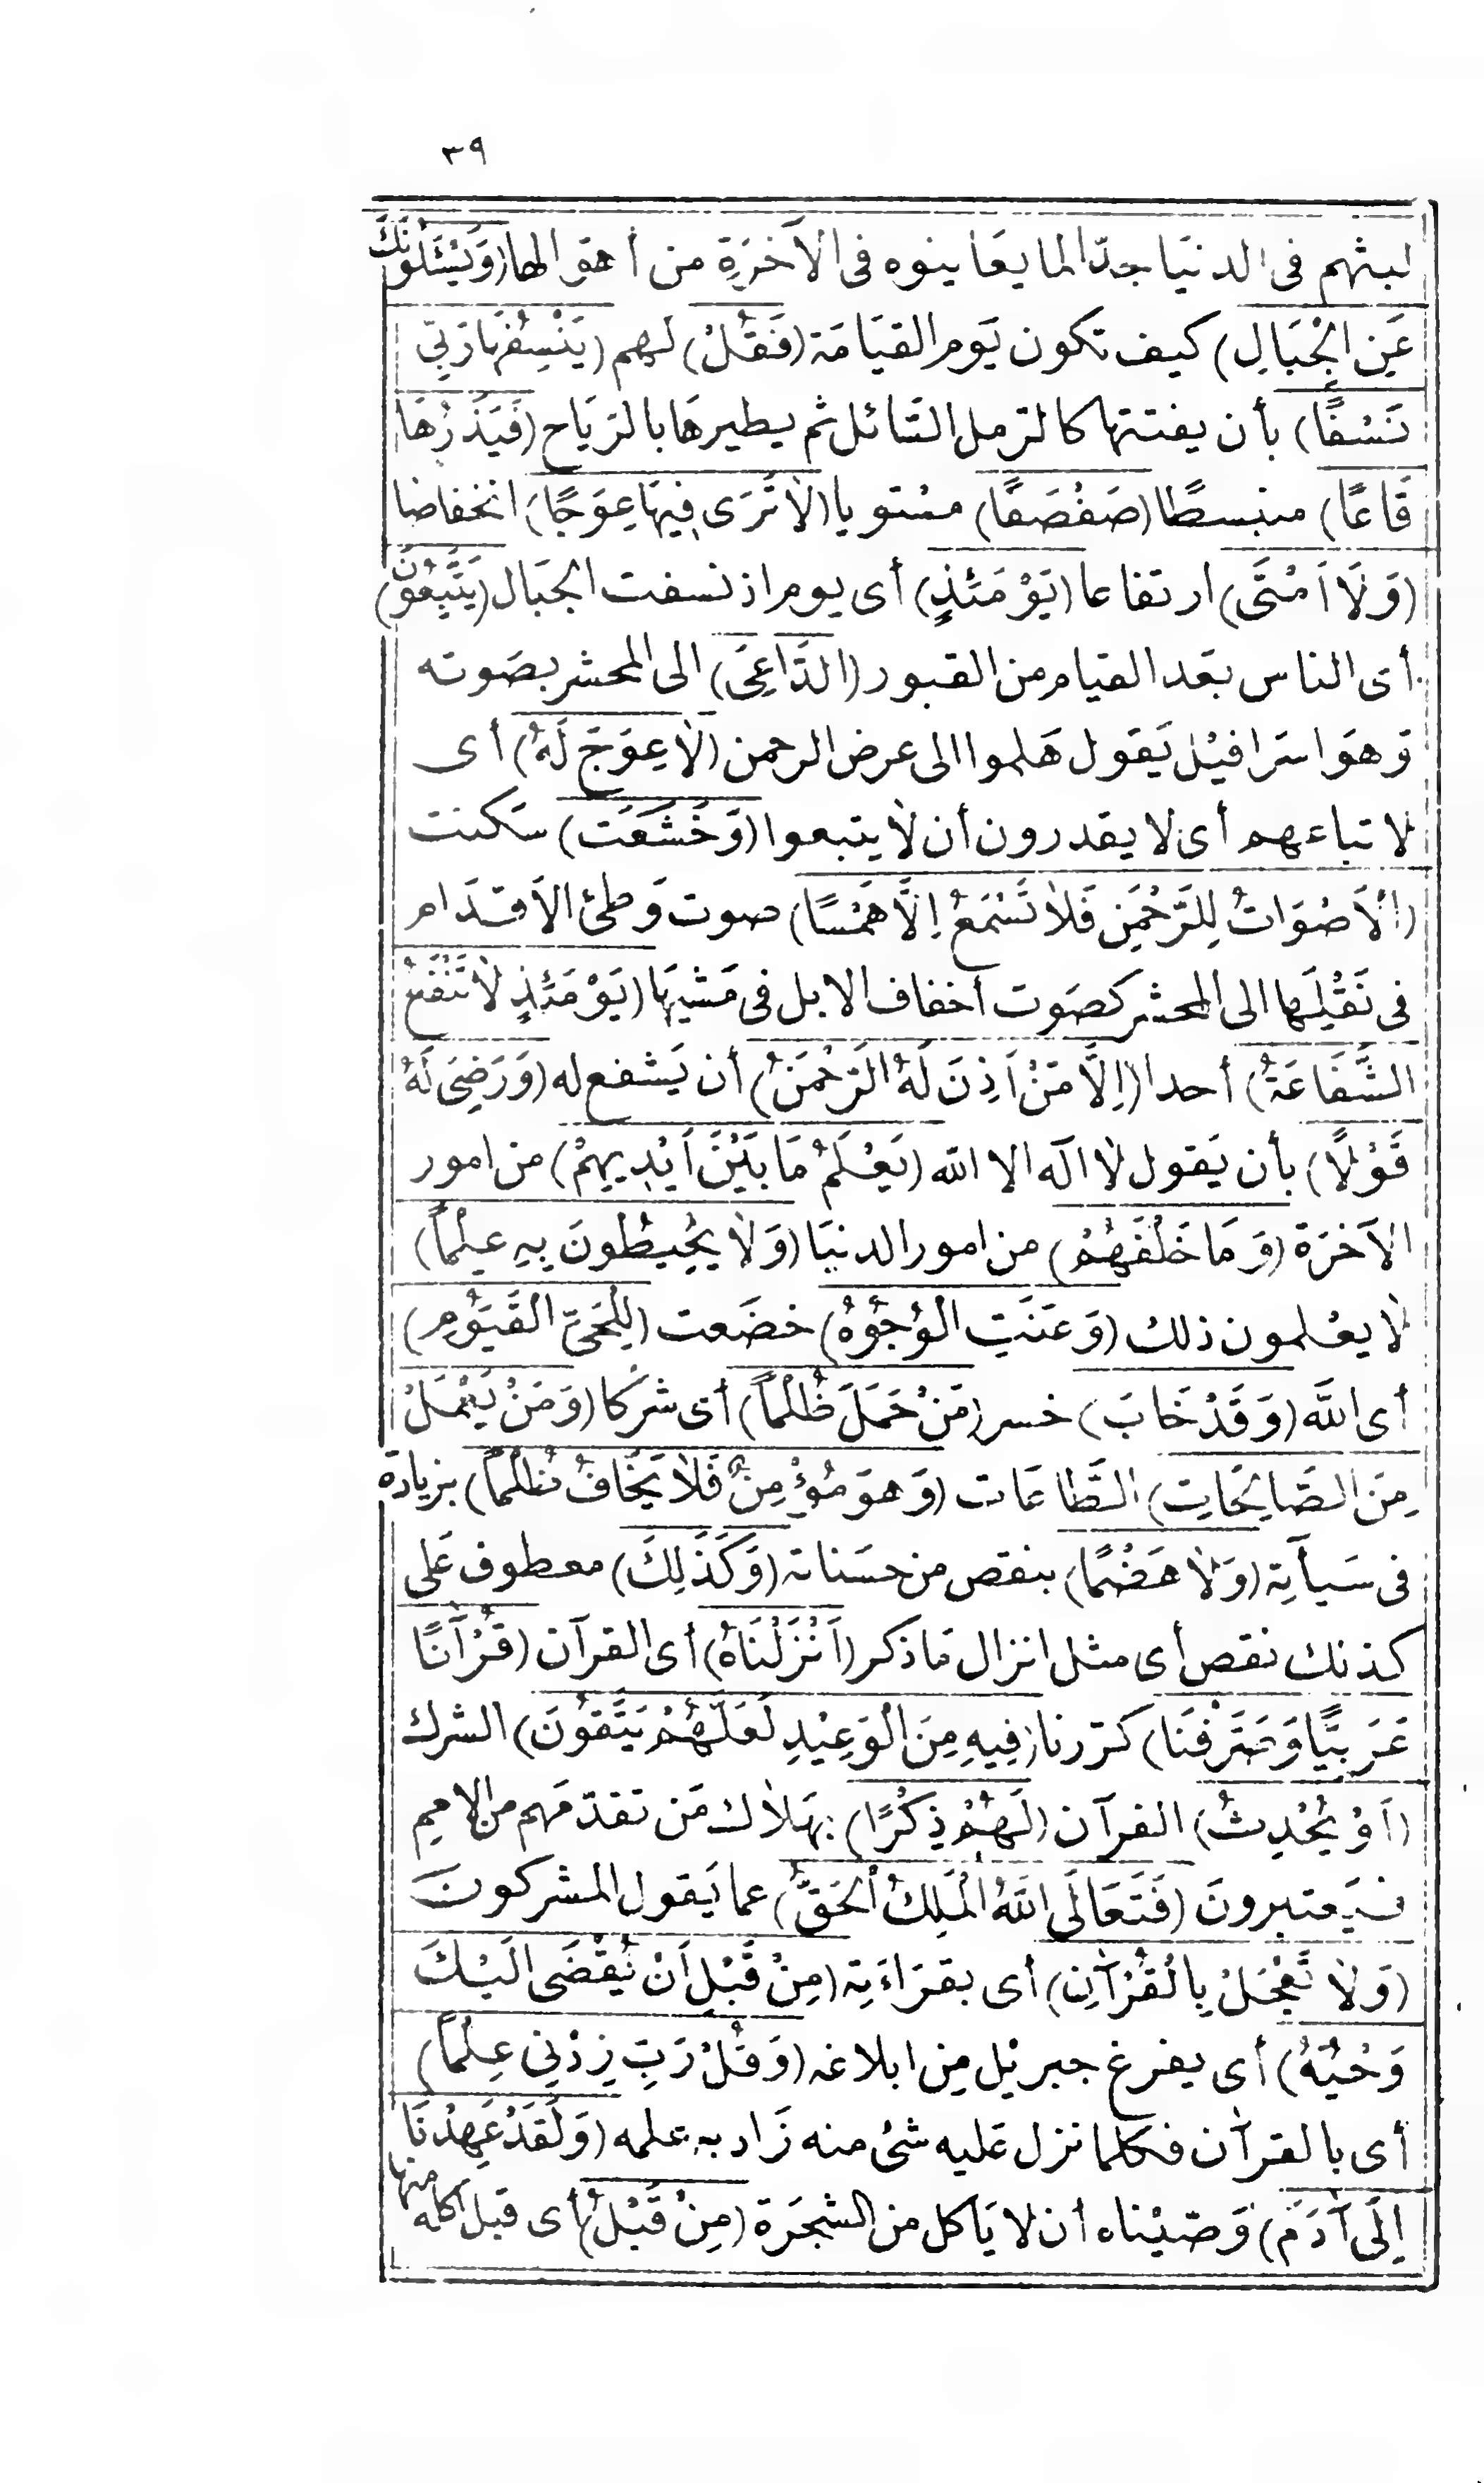 ٣٩
لبثهم فى الدنيا جدّا لما يعاينوه فى الآخرة من أهوالها (وَيَسْئَلُونَكَ
عَنِ الْجِبَالِ) كيف تكون يَوم القيَامَة (فَقُلْ) لهم (يَنْسِفُهَا رَبِّي
نَسْفًا) بأن يفتتها كالرّمل السَّائل ثم يطيرهَا بالرّيَاح (فَيَذَرُهَا
قَاعًا) منبسطًا (صَفْصَفًا) مستويا (لَا تَرَى فِيهَا عِوَجًا) انخفاضا
(وَلَا اَمْتَى) ارتفاعا (يَوْمَئِذٍ) أى يوم اذ نسفت الجبَال (يَتَّبِعُونَ)
أى الناس بعَد القيام من القبور (الدَّاعِىَ) الى المحشر بصَوته
وَهوَ اسرافيْل يَقول هَلموا الى عرض الرحمن (لَا عِوَجَ لَهُ) أى
لا تباعهم أى لا يقدرون أن لَا يتبعوا (وَخَشَعَتِ) سَكنت
(الْاَصْوَاتُ لِلرَّحْمَنِ فَلَا تَسْمَعُ اِلَّا هَمْسًا) صوت وَطئ الاَقدَام
فى نَقْلِهَا الى المحشر كصَوت أخفاف الابل فى مَشيهَا (يَوْمَئِذٍ لَا تَنْفَعُ
الشَّفَاعَةُ) أحدا (اِلَّا مَنْ اَذِنَ لَهُ الرَّحْمَنُ) أن يَشفع له (وَرَضِىَ لَهُ
قَوْلًا) بأن يَقول لا اله الا الله (يَعْلَمُ مَا بَيْنَ اَيْدِيهِمْ) من امور
الآخرَة (وَمَا خَلْفَهُمْ) من امور الدنيَا (وَلَا يُحِيطُونَ بِهِ عِلْماً)
لا يعْلمون ذلك (وَعَنَتِ الْوُجُوهُ) خضَعت (لِلْحَىِّ الْقَيُّومِ)
أى اللَّه (وَقَدْ خَابَ) خسر (مَنْ حَمَلَ ظُلْماً) أى شركا (وَمَنْ يَعْمَلْ
مِنَ الصَّالِحَاتِ) الطَّاعَات (وَهوَ مُؤْمِنٌ فَلَا يَخَافُ ظُلْماً) بزيادة
فى سَيأتِه (وَلَا هَضْمًا) بنقص من حسَناته (وَكَذَلِكَ) معطوف عَلى
كذلك نقص أى مثل انزال مَا ذكر (اَنْزَلْنَاهُ) أى القرآن (قُرْآنًا
عَرَبِيًّا وَصَرَّفْنَا) كرّرنا (فِيهِ مِنَ الْوَعِيْدِ لَعَلَّهُمْ يَتَّقُونَ) الشرك
(اَوْ يُحْدِثُ) القرآن (لَهُمْ ذِكْرًا) بهَلاك مَن تقدّمَهم من الامم
فيَعتبرونَ (فَتَعَالَى اللَّهُ الْمَلِكُ الْحَقُّ) عما يَقول المشركون
(وَلَا تَعْجَلْ بِالْقُرْآنِ) أى بقرَاءَتِه (مِنْ قَبْلِ اَنْ نُقْضَى اِلَيْكَ
وَحْيُهُ) أى يفرغ جبريْل مِن ابلاغه (وَقُلْ رَبِّ زِدْنِي عِلْماً)
أى بالقرآن فكلما نزل عَليه شئ منه زَاد به علمه (وَلَقَدْ عَهِدْنَا
اِلَى آدَمَ) وَصّيْناه أن لا يَاكل من الشجَرَة (مِنْ قَبْلُ) أى قبل اكله منها